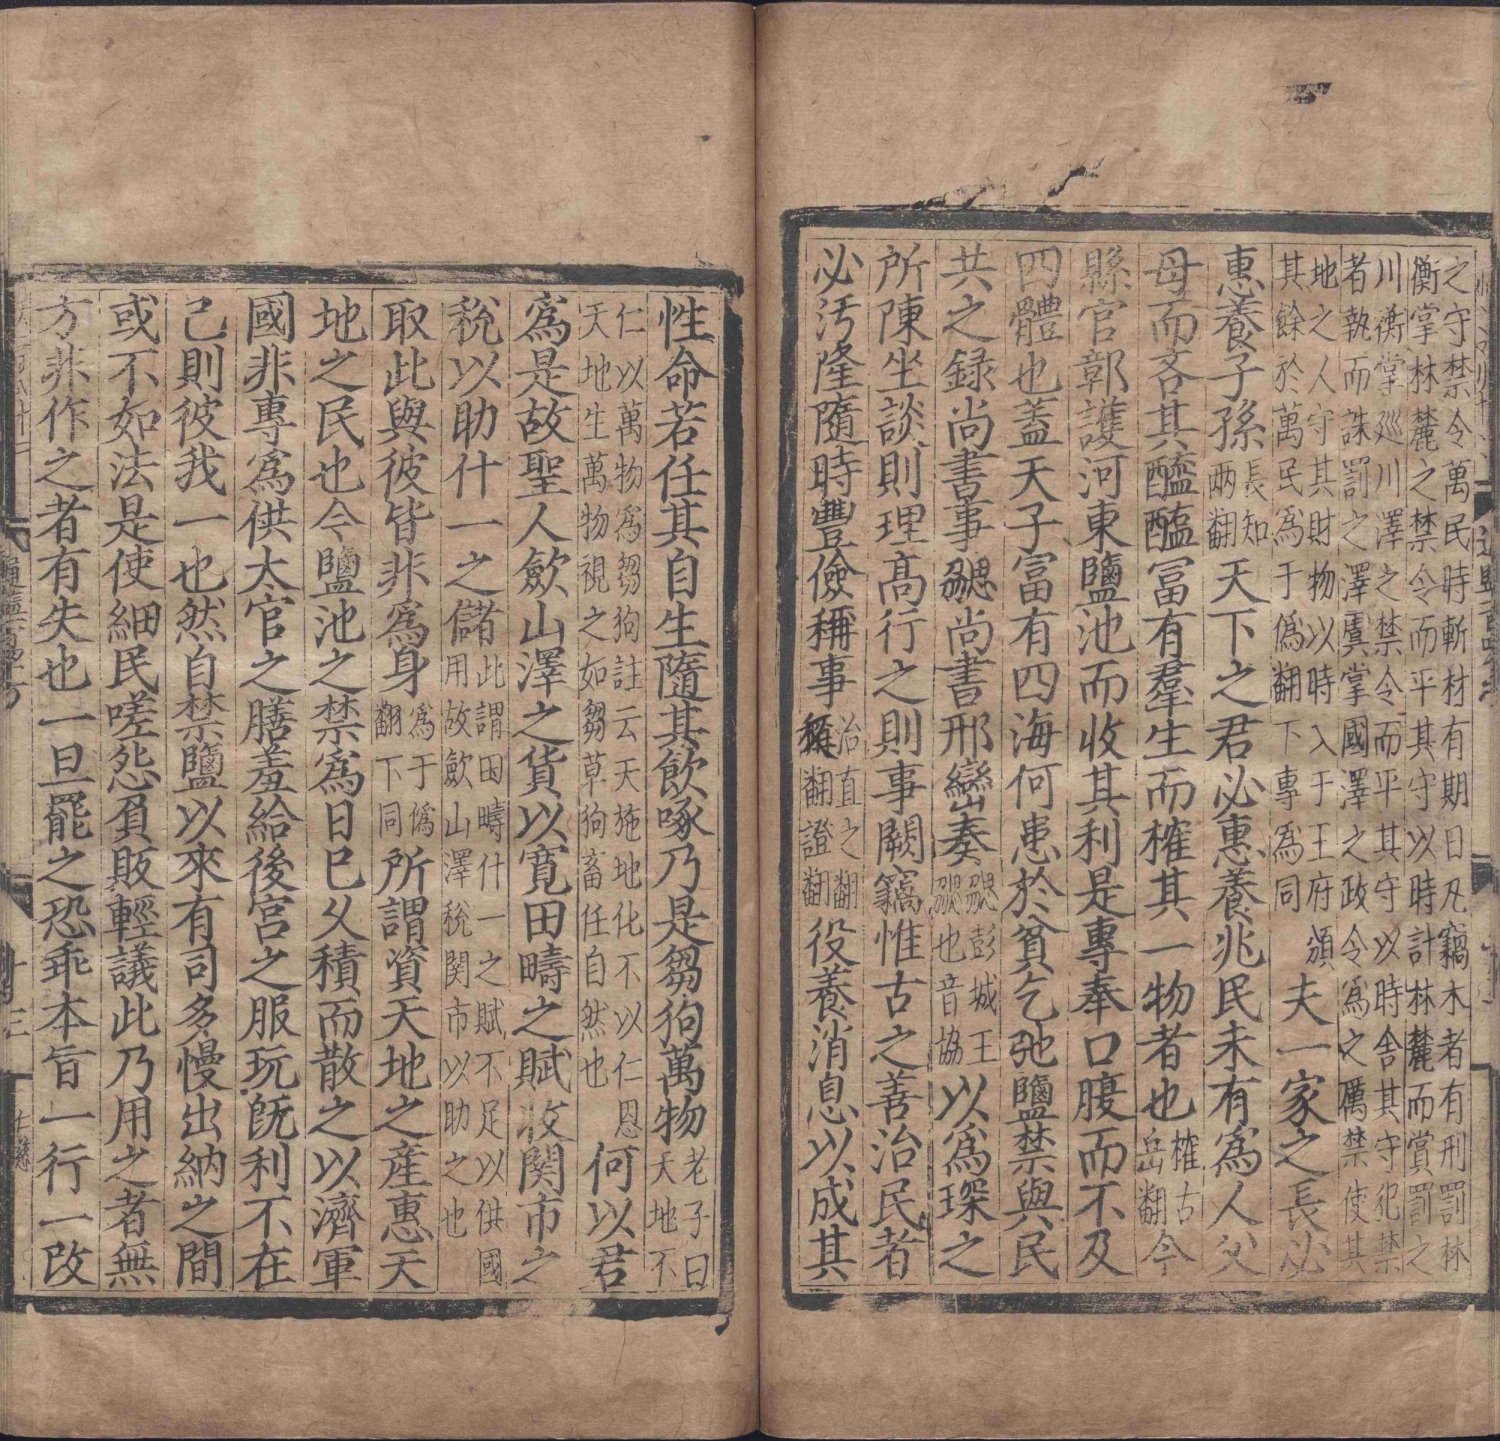 之守禁令萬民時斬材有期日凡竊木者有刑罰林
衡掌林麓之禁令而平其守以時計林麓而賞罰之
川衡掌巡川澤之禁令而平其守以時舍其守犯禁
者執而誅罰之澤虞掌國澤之政令爲之厲禁使其
地之人守其財物以時入于王府頒
其餘於萬民爲于僞翻下專爲同
夫一家之長必
惠養子孫長知兩翻天下之君必惠養兆民未有爲人父
母而吝其醯醢冨有羣生而榷其一物者也榷古岳翻今
縣官鄣護河東鹽池而收其利是專奉口腹而不及
四體也蓋天子富有四海何患於貧乞弛鹽禁與民
共之録尚書事勰尚書邢巒奏勰彭城王勰也音協以爲琛之
所陳坐談則理高行之則事闕竊惟古之善治民者
必汚隆隨時豐儉稱事治直之翻稱尺證翻役養消息以成其
性命若任其自生隨其飲啄乃是芻狗萬物老子曰天地不
仁以萬物爲芻狗註云天施地化不以仁恩
天地生萬物視之如芻草狗畜任自然也
何以君
爲是故聖人斂山澤之貨以寬田疇之賦收関市之
稅以助什一之儲此謂田疇什一之賦不足以供國用故斂山澤稅関市以助之也
取此與彼皆非爲身爲于僞翻下同所謂資天地之產惠天
地之民也今鹽池之禁爲日已久積而散之以濟軍
國非專爲供太官之膳羞給後宮之服玩旣利不在
己則彼我一也然自禁鹽以來有司多慢出納之間
或不如法是使細民嗟怨負販輕議此乃用之者無
方非作之者有失也一旦罷之恐乖本旨一行一改